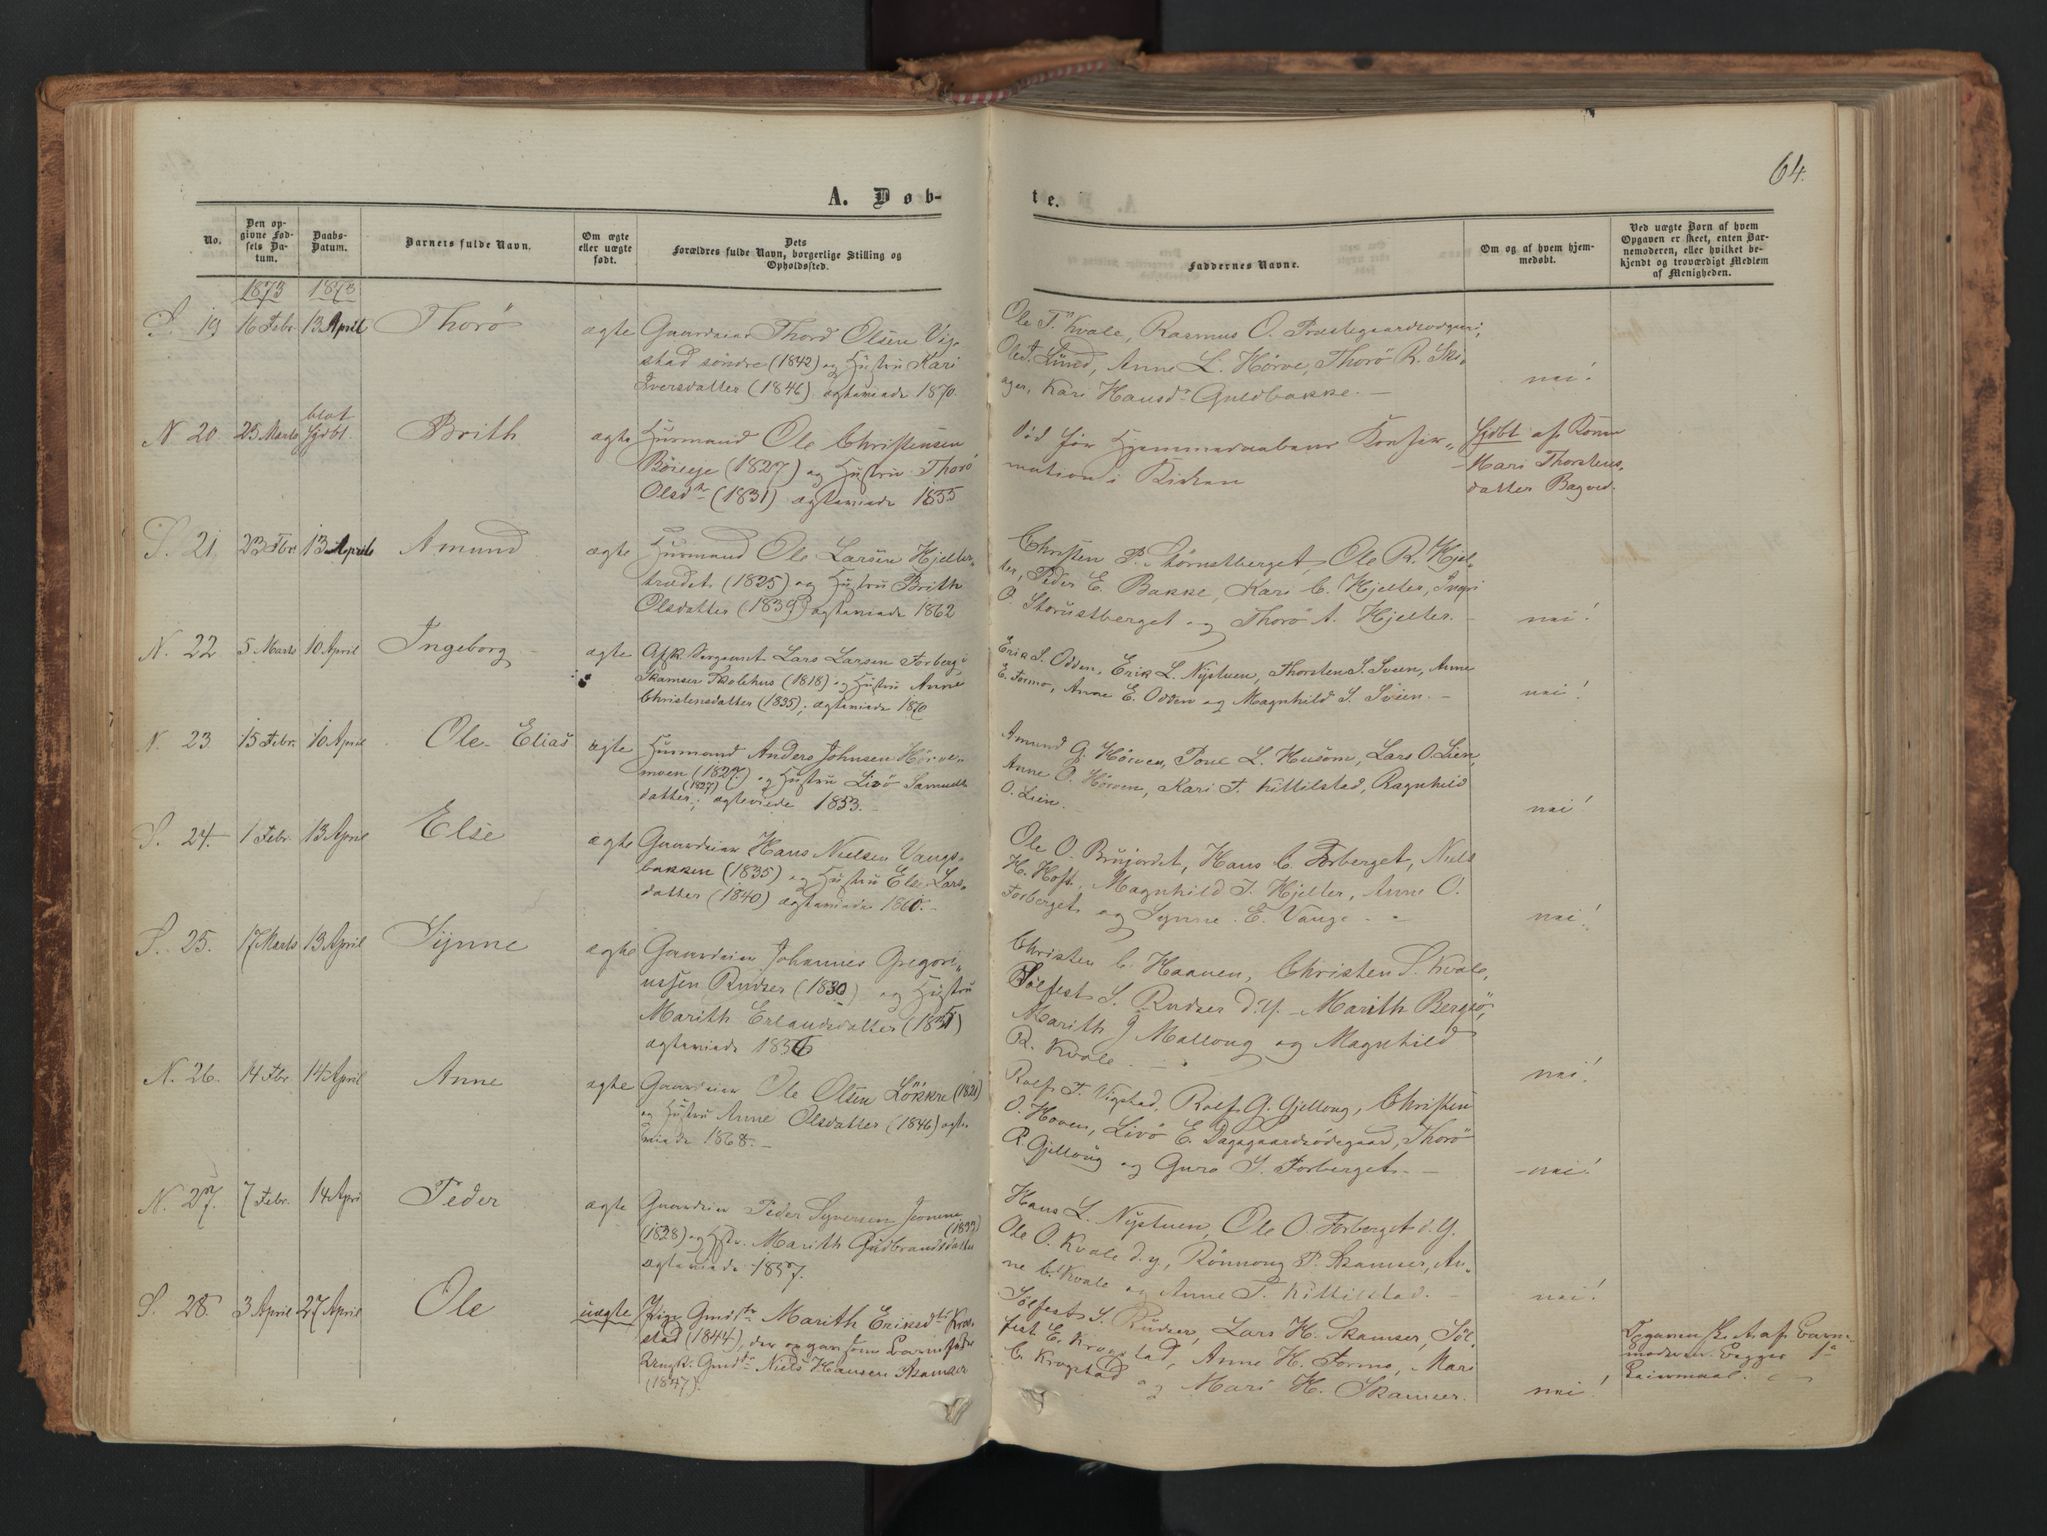 64.
A. Døb-
te.
No.
Den op-
givne Fød-
sels Da-
tum.
Daabs-
Datum.
Barnets fulde Navn.
Om ægte
eller uægte
født.
Dets
Forældres fulde Navn, borgerlige Stilling og
Opholdssted.
Faddernes Navne.
Om og af hvem hjem-
medøbt.
Ved uægte Børn af hvem
Opgaven er skeet, enten Bar-
nemoderen, eller hvilket be-
kjendt og troværdigt Medlem
af Menigheden.
1873 1873
S. 19 16 Febr 13 April Thorø ægte Gaardeier Thord Olsen Vig-
stad søndre (1842) og Hustru Kari
Iversdatter (1846) ægteviede 1870.
Ole T. Kvale, Rasmus O. Præstegaardsødegaard,
Ole T. Lund, Anne L. Hørve, Thorø R. Ski-
ager, Kari Hansdr Guldbakke. —
nei!
N 20. 25 Marts blot hjdbt. Brith ægte Husmand Ole Christensen
Böieeje (1827) og Hustru Thorø
Olsdr (1831) ægteviede 1855
Død før Hjemmedaabens Konfir-
mation i Kirken
hjdbt af Konen
Mari Thorstens-
datter Bagved.
S. 21. 23 Fbr. 13 April Amund ægte Husmand Ole Larsen Hjelter-
trædet (1825) og Hustru Brith
Olsdatter (1839) ægteviede 1862
Christen P. Størustberget, Ole R. Hjel-
ter, Peder E. Bakke, Kari C. Hjelter, Ingri
O. Storustberget og Thorø A. Hjelter. —
nei!
N. 22 5 Marts 10 April Ingeborg ægte Afsk. Sergeant Lars Larsen Forberg i
Skamser Skolehus (1818) og Hustru Anne
Christensdatter (1835), ægteviede 1870
Erik S. Odden, Erik L. Nystuen, Thorsten S. Sveen, Anne
E. Formo, Anne E. Odden og Magnhild S. Sveen. —
nei!
N. 23. 15 Febr. 10 April Ole Elias ægte Husmand Anders Johnsen Hörve-
moen (1827) og Hustru Livø Samuels-
datter (1827); ægteviede 1853. —
Amund G. Hörven, Poul L. Husom, Lars O. Lien,
Anne O. Hörven, Kari T. Kittilstad, Ragnhild
O. Lien. —
nei!
S. 24. 1 Febr. 13 April Else ægte Gaardeier Hans Nielsen Vangs-
bakken (1835) og Hustru Else Lars-
datter (1840) ægteviede 1860. —
Ole O. Brujordet, Hans C. Forberget, Niels
H. Hoft, Magnhild I. Hjelter, Anne O.
Forberget og Synne E. Vange. —
nei!
S. 25. 17 Marts 13 April Synne ægte Gaardeier Johannes Gregori-
ussen Rudser (1830) og Hustru
Marith Erlandsdatter (1831)
ægteviede 1856
Christen C. Haaven, Christen S. Kvale,
Sölfest S. Rudser d.y. Marith Bergsø,
Marith J Mallong og Magnhild
R. Kvale. —
nei!
N. 26. 14 Fbr. 14 April Anne ægte Gaardeier Ole Olsen Løkkre (1821)
og Hustru Anne Olsdatter (1846) ægte-
viede 1868. —
Rolf T. Vigstad, Rolf G. Gjellong, Christen
O. Hoven, Livø E. Dagsgaardsødegaard, Thorø
R. Gjellong og Guro S. Forberget. —
—nei!
N. 27. 7 Febr. 14 Apri Peder ægte Gaardeier Peder Syversen Jevnne
(1828) og Hstr. Marith Gudbrandsdatter (1832)
ægteviede 1857.
Hans L. Nystuen, Ole O. Forberget d. y.
Ole O. Kvale d. y., Rønnoug P. Skamser, An-
ne C. Kvale og Anne T. Kittilstad. —
nei!
S. 28. 3 April 27 April Ole uægte Pige Gmdstr Marith Eriksdtr Krog-
stad (1844), der opgav som Barnefader
Ungk. Gmdstr Niels Hansen Skamser
(1847).
Sölfest S. Rudser, Lars H. Skamser, Söl-
fest E. Krogstad, Anne H. Formo, Mari
C. Krogstad og Mari H. Skamser.
nei!
Opgaven ske. A. af Barne-
moderen. Begges 1ste
Leiermaal. —